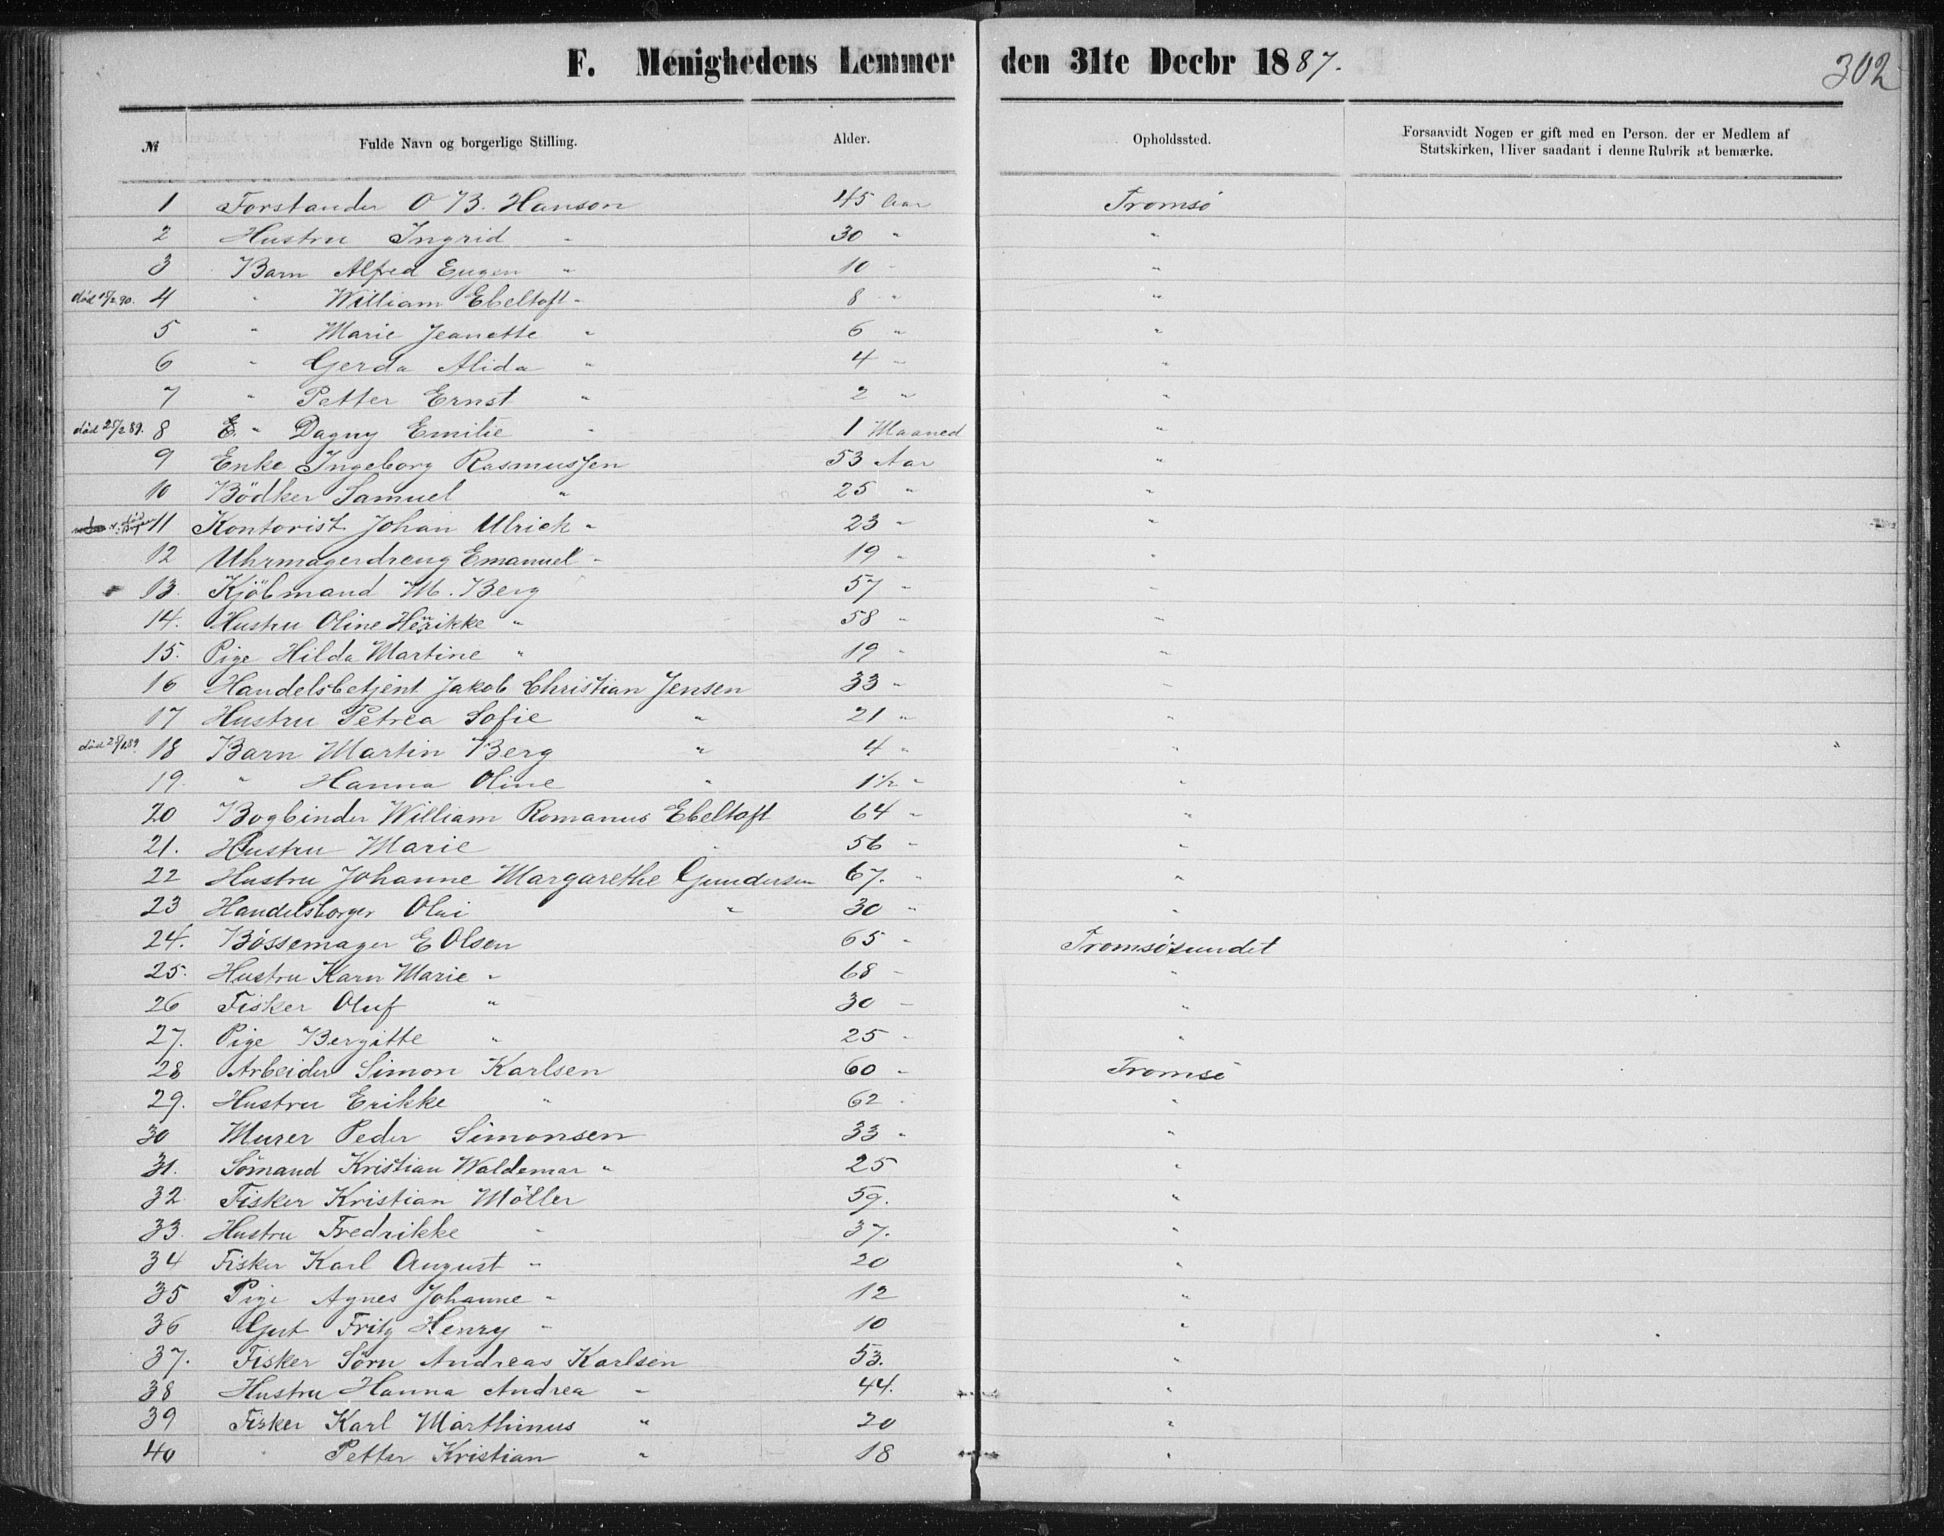 F. Menighedens Lemmer den 31te Decbr 1887.
302
№ Fulde Navn og borgerlige Stilling. Alder. Opholdssted. Forsaavidt Nogen er gift med en Person, der er Medlem af
Statskirken, bliver saadant i denne Rubrik at bemærke.
1 Forstander O B. Hanson 45 Aar Tromsö
2 Hustru Ingrid " 30 " "
3 Barn Alfred Eugen " 10 " "
död 15/2 90. 4 " William Ebeltoft " 8 " "
5 " Marie Jeanette " 6 " "
6 " Gerda Alida " 4 " "
7 " Petter Ernst " 2 " "
död 25/2 89. 8 E. " Dagny Emilie " 1 Maaned "
9 Enke Ingeborg Rasmussen 53 Aar "
10 Bödker Samuel " 25 " "
död 11 Kontorist Johan Ulrick " 23 " "
12 Uhrmagerdreng Emanuel " 19 " "
13. Kjöbmand M. Berg 57 " "
14. Hustru Oline Henrikke " 58 " "
15. Pige Hilda Martine " 19 " "
16 Handelsbetjent Jakob Christian Jensen 33 " "
17 Hustru Petrea Sofie " 21 " "
död 18 Barn Martin Berg " 4 " "
19. " Hanna Oline " 1½ " "
20 Bogbinder William Romanus Ebeltoft 64 " "
21. Hustru Marie " 56 " "
22 Hustru Johanne Margarethe Gundersen 67. " "
23 Handelsborger Olai " 30 " "
24. Bössemager E Olsen 65 " Tromsösundet
25. Hustru Karn Marie " 68 " "
26 Fisker Oluf " 30 " "
27. Pige Bergitte " 25 " "
28 Arbeider Simon Karlsen 60 " Tromsö
29. Hustru Erikke " 62 " "
30 Murer Peder Simonsen 33 " "
31. Sömand Kristian Waldemar " 25 "
32 Fisker Kristian Möller 59. "
33. Hustru Fredrikke " 37. "
34 Fisker Karl August " 20 "
35 Pige Agnes Johanne " 12 "
36 Gut Fritz Henry " 10 "
37. Fisker Sörn Andreas Karlsen 53. "
38 Hustru Hanna Andrea " 44. "
39 Fisker Karl Marthinus " 20 "
40 " Petter Kristian " 18 "